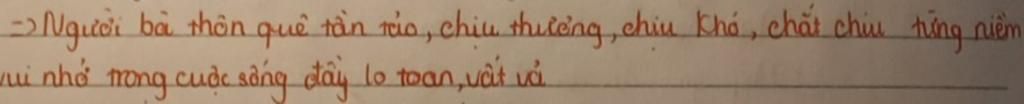 => Người bà thôn quê tần tảo, chịu thương, chịu khó, chắt chiu từng niềm
vui nhỏ trong cuộc sống đầy lo toan, vất vả